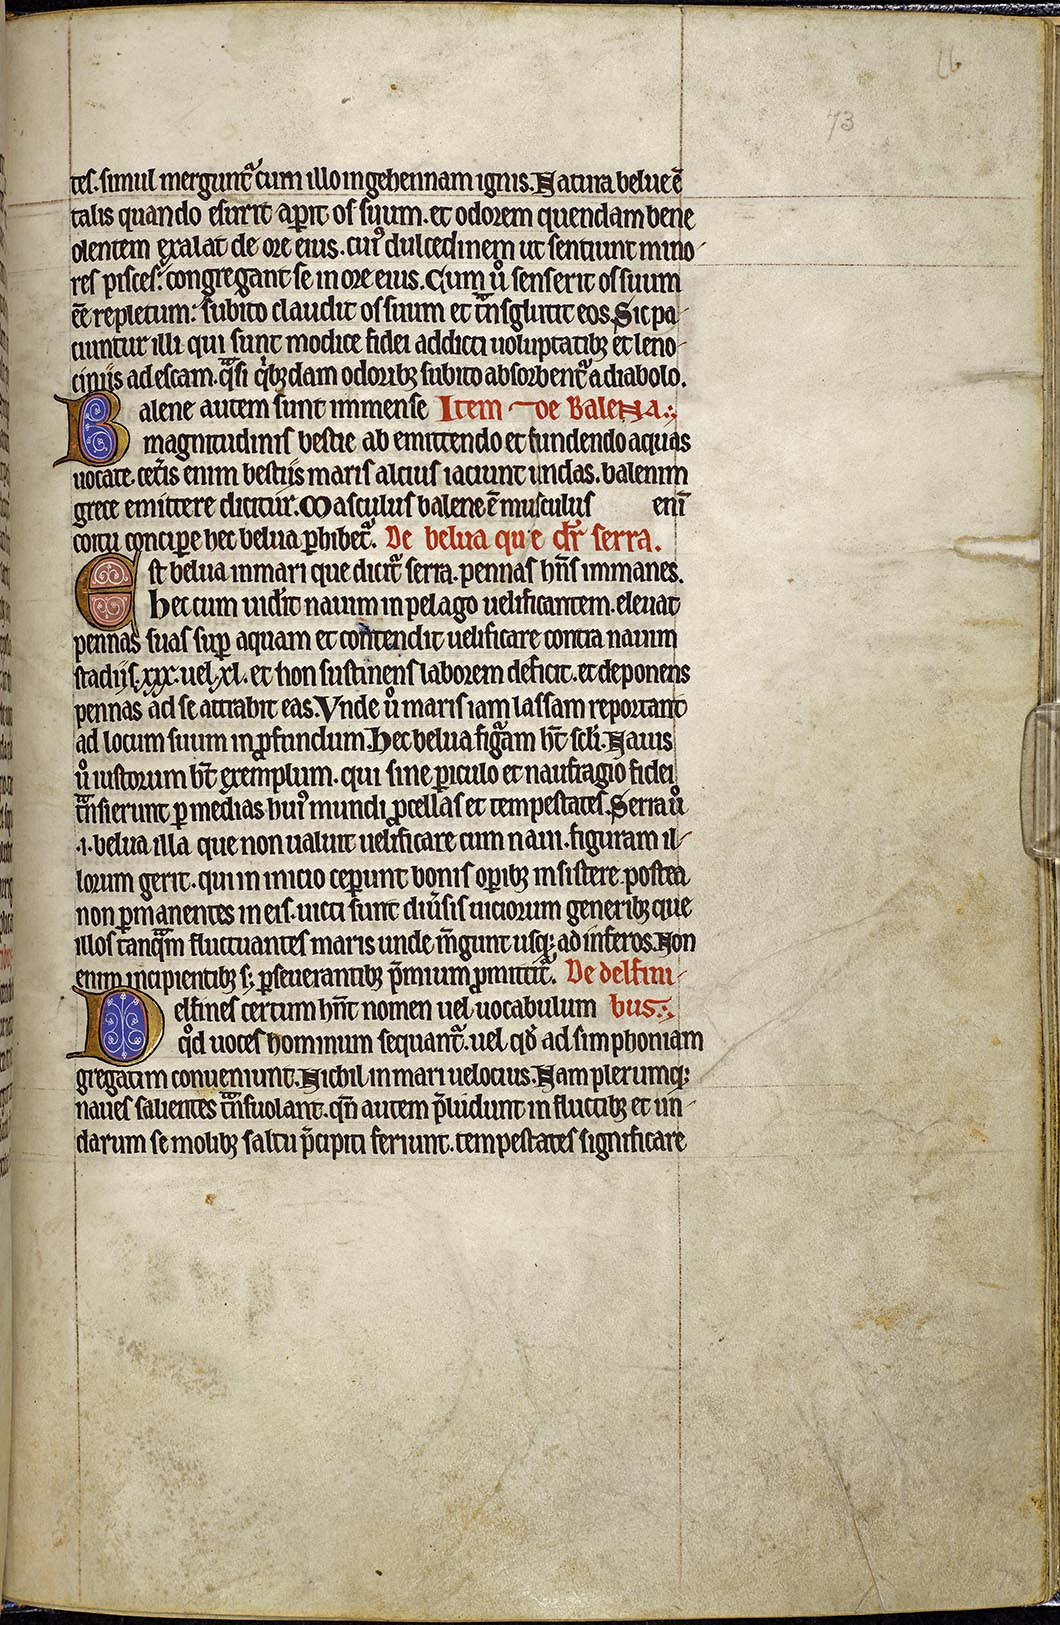 66
73
tes. simul mergunt᷑ cum illo in gehennam ignis. Natura belue ē
talis quando esurit aꝑit os suum. et odorem quendam bene
olentem exalat de ore eius. cuiꝰ dulcedinem ut sentiunt mino-
res pisces: congregant se in ore eius. Cum u᷒ senserit os suum
ēē repletum: subito claudit os suum et tͣnsglutit eos. Sic pa-
tiuntur illi qui sunt modice fidei addicti uoluptatibꝫ et leno-
ciniis ad escam. qͣsi qͥbꝫdam odoribꝫ subito absorbent᷑ a diabolo.
Balene autem sunt immense Item de Balena.
magnitudinis bestie ab emittendo et fundendo aquas
uocate. cet̾is enim bestiis maris altius iaciunt undas. balenim
grece emittere dicitur. Masculus balene ē musculus eni̅
coitu concipe hec belua ꝓhibet᷑. De belua que dr̅ serra.
Est belua in mari que dicit᷑ serra. pennas hn̅s immanes.
Hec cum uid̾it nauim in pelago uelificantem. eleuat
pennas suas suꝑ aquam et contendit uelificare contra nauim
stadiis. xxx. uel. xl. et non sustinens laborem deficit. et deponens
pennas ad se attrahit eas. Vnde u᷒ maris iam lassam reportant
ad locum suum in ꝓfundum. Hec belua figͣam ht̅ scl̅i. Nauis
u᷒ iustorum ht̅ exemplum. qui sine ꝑiculo et naufragio fidei
tͣnsierunt ꝑ medias huiꝰ mundi ꝓcellas et tempestates. Serra u᷒
.i. belua illa que non ualuit uelificare cum naui. figuram il-
lorum gerit. qui in inicio ceꝑunt bonis oꝑibꝫ insistere. postea
non ꝑmanentes in eis. uicti sunt diu̾sis uiciorum generibꝫ que
illos tanqͣm fluctuantes maris unde m̾gunt usqꝫ ad inferos. Non
enim incipientibꝫ sꝫ ꝑseuerantibꝫ p̅mium ꝓmittit᷑. De delfini-
Delfines certum hn̅t nomen uel uocabulum bus.
qd̾ uoces hominum sequant᷑. uel qd̾ ad simphoniam
gregatim conueniunt. Nichil in mari uelocius. Nam plerumqꝫ
naues salientes tͣnsuolant. qn̅ autem p̅ludunt in fluctibꝫ et un-
darum se molibꝫ saltu p̅cipiti feriunt. tempestates significare